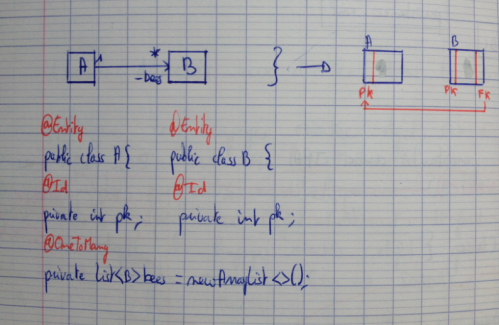 A 1 * B
-bees
A B
PK PK FK
@Entity @Entity
public class A { public class B {
@Id @Id
private int pk; private int pk;
@OneToMany
private List<B> bees = new ArrayList<>();